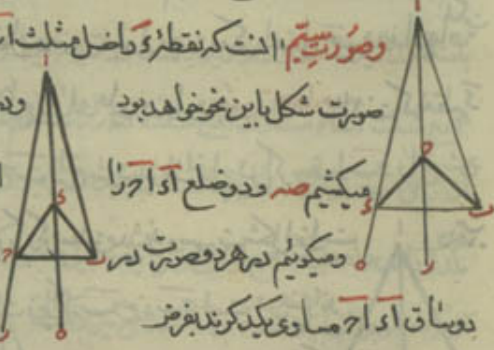 وصورت سیّم انست که نقطهٔ ء داخل مثلث ا
صورت شکل باین نحو خواهد بود ود
میکشیم صه ودو ضلع اء اح را
ومیکوئیم در هر دو صورت در
دو ساق اء اح مساوی یکدکرند بفرض